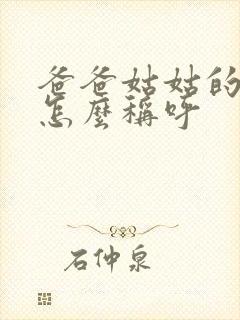 爸爸姑姑的
怎麼稱呼
石仲泉